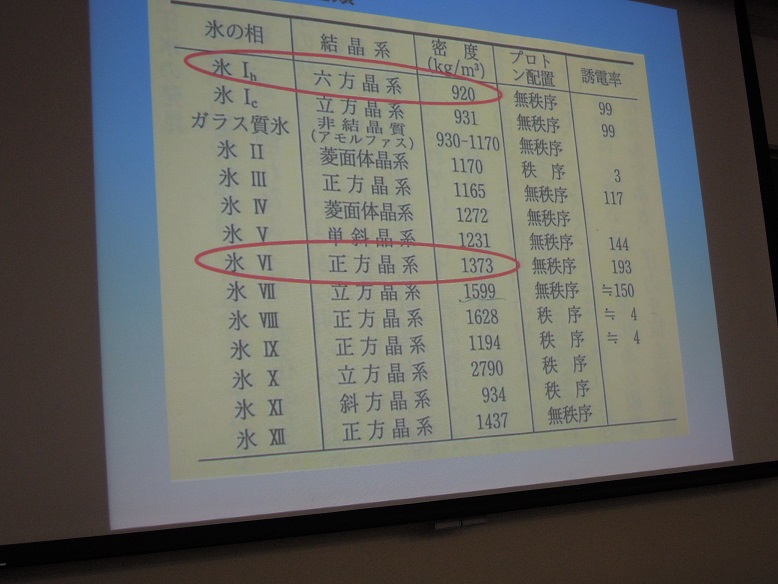 氷の相 結晶系 密度 (kg/m³) プロトン配置 誘電率
氷 Ih 六方晶系 920 無秩序 99
氷 Ic 立方晶系 931 無秩序 99
ガラス質氷 非結晶質 (アモルファス) 930-1170 無秩序
氷 II 菱面体晶系 1170 秩序 3
氷 III 正方晶系 1165 無秩序 117
氷 IV 菱面体晶系 1272 無秩序
氷 V 単斜晶系 1231 無秩序 144
氷 VI 正方晶系 1373 無秩序 193
氷 VII 立方晶系 1599 無秩序 ≒150
氷 VIII 正方晶系 1628 秩序 ≒ 4
氷 IX 正方晶系 1194 秩序 ≒ 4
氷 X 立方晶系 2790 秩序
氷 XI 斜方晶系 934 秩序
氷 XII 正方晶系 1437 無秩序